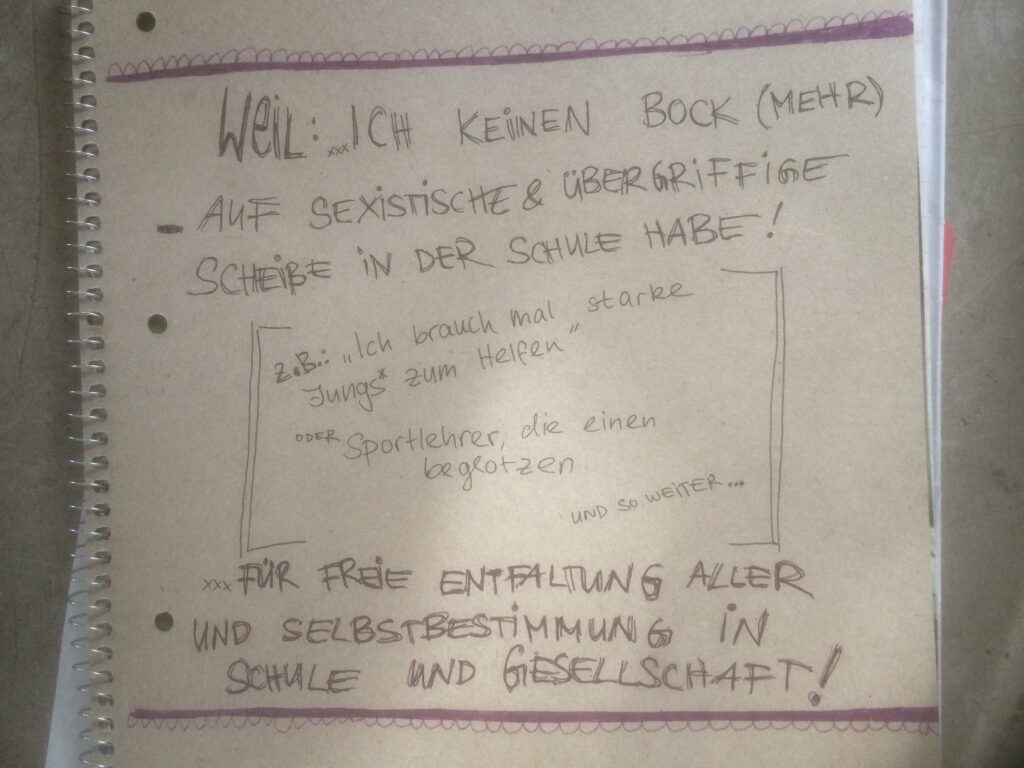 WEIL: ...xxx ICH KEINEN BOCK (MEHR)
- AUF SEXISTISCHE & ÜBERGRIFFIGE
SCHEIßE IN DER SCHULE HABE!
z.B.: „Ich brauch mal starke
Jungs* zum Helfen"
ODER Sportlehrer, die einen
beglotzen
UND SO WEITER...
xxx FÜR FREIE ENTFALTUNG ALLER
UND SELBSTBESTIMMUNG IN
SCHULE UND GESELLSCHAFT!